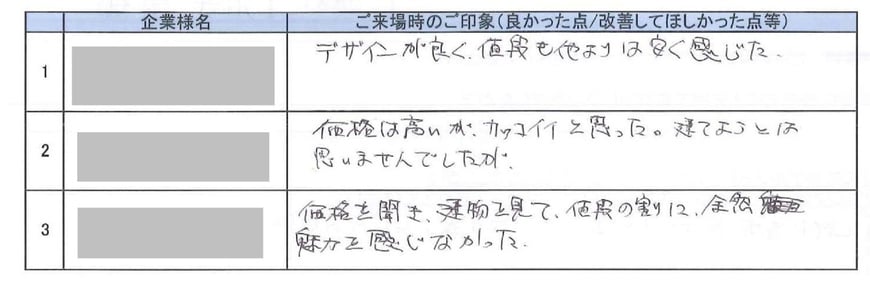 企業様名 ご来場時のご印象(良かった点/改善してほしかった点等)
1 デザインが良く、値段も他よりは安く感じた。
2 価格は高いが、カッコイイと思った。建てようとは
思いませんでしたが、
3 価格を聞き、建物を見て、値段の割に、全然
魅力を感じなかった。